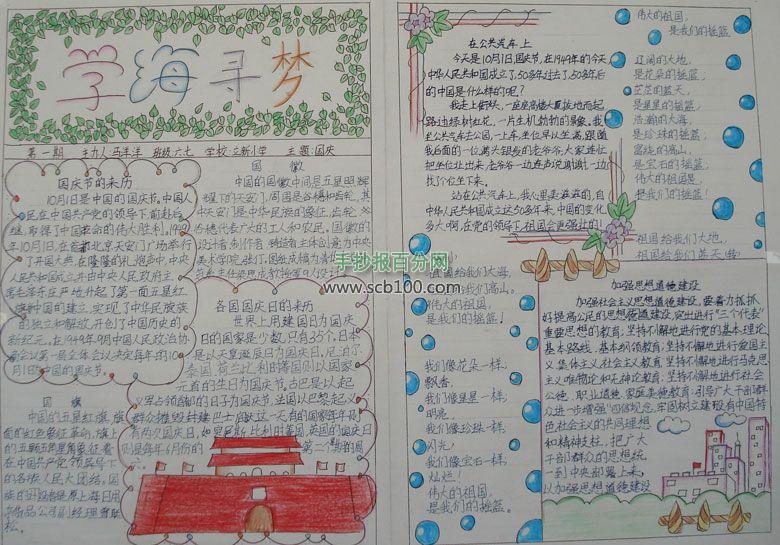 学海寻梦
第一期 主办人 马洋洋 班级:六七 学校:立新小学 主题:国庆
国庆节的来历
10月1日是中国的国庆节,中国人
民在中国共产党的领导下前赴后
继,取得中国革命的伟大胜利,1949
年10月1日,在首都北京天安门广场举行
了开国大典,在隆隆的礼炮声中,中央
人民共和国成立并由中央人民政府主
席毛泽东庄严地升起了第一面五星红
旗,中国的建立,实现了中华民族
的独立和解放,开创了中国历史的
新纪元。在1949年,中国人民政治协
商会议第一届全体会议决定每年的10
月1日为中国的国庆节。
国旗
中国的五星红旗,旗
面的红色象征革命,旗上
的五颗五角星象征着
在中国共产党领导下
的各族人民大团结,国
旗的设计者是原上海日用
杂品公司副经理曾联
松。
国徽
中国的国徽中间是五星照耀
下的天安门,周围是谷穗和齿轮,其
中天安门是中华民族的象征,齿轮、谷
穗代表广大的工人和农民,国徽的
各国国庆日的来历
世界上用建国日为国庆
日的国家是少数,只有35个,日本
是以天皇诞辰日为国庆日,尼泊尔
泰国荷兰比利时等国则以国家
元首的生日为国庆日,古巴是以起义
胜利的日子为国庆节。法国以巴黎起义
群众摧毁封建
有两次国庆日,
则是每年6月份的第二个
手抄报百分网
www.scb100.com
在公共汽车上
今天是10月1日,国庆节,在1949年的今天
中华人民共和国成立了,50多年过去了,50多年后
的中国是什么样的呢?
我走上街头,一座座高楼大厦拔地而起
路边绿树红花,一片生机勃勃的景象,我
坐公共汽车去公园,一上车,坐位早以坐满,跟随
我后面的一位满头银发的老爷爷,大家连忙
把坐位让出来,老爷爷一边连声说谢谢!一边
找个位坐下来。
站在公共汽车上,我心里美滋滋的,自
中华人民共和国成立这50多年来,中国的变化
多大啊,在党的领导下,祖国会更强壮的!
伟大的祖国,
是我们的摇篮。
辽阔的大地,
是花朵的摇篮;
茫茫的蓝天,
是星星的摇篮;
浩瀚的大海,
是珍珠的摇篮;
富饶的高山,
是宝石的摇篮,
是我们的摇篮!
祖国给我们大地,
祖国给我们蓝天
祖国给我们大海,
给我们高山。
伟大的祖国,
是我们的摇篮。
我们像花朵一样,
飘香,
我们像星星一样,
明亮,
我们像珍珠一样,
闪光!
我们像宝石一样,
灿烂!
伟大的祖国,
是我们的摇篮。
加强思想道德建设
加强社会主义思想道德建设,要着力抓
好提高公民的思想道德建设,突出进行“三个代表”
重要思想的教育,坚持不懈地进行党的基本理论,
基本路线、基本纲领教育;坚持不懈地进行爱国主
义,集体主义,社会主义教育,坚持不懈地进行马克思
主义唯物论和无神论教育,坚持不懈地进行社会
公德,职业道德,家庭美德教育,引导广大干部群众
进一步增强“四信”观念,牢固树立建设有中国特
色社会主义的共同理想
和精神支柱,把广大
干部群众的思想统
一到中央部署上来。
以加强思想道德建设